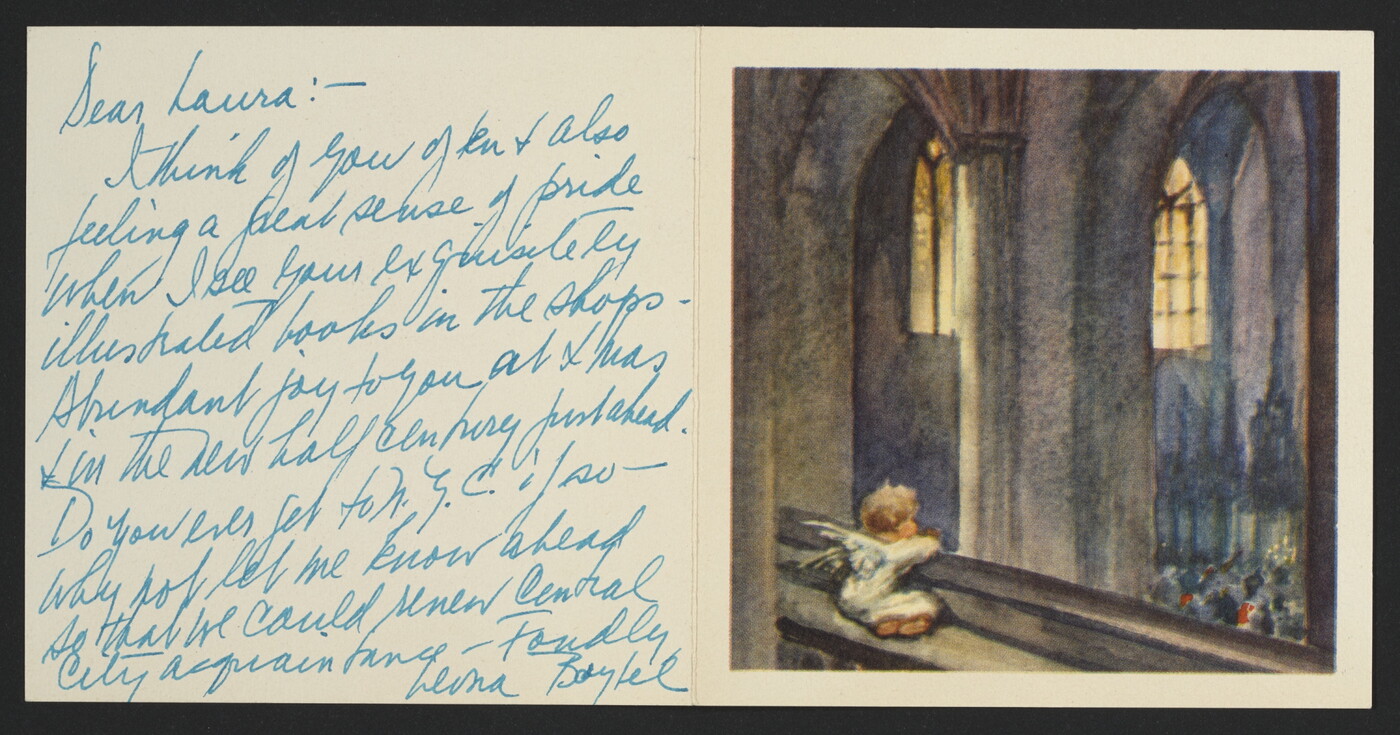 Dear Laura:—
I think of you often & also
feeling a great sense of pride
when I see your exquisitely
illustrated books in the shops -
Abundant joy to you at Xmas
& in the new half century just ahead.
Do you ever get to N.Y.C. if so —
why not let me know ahead
so that we could renew Central
City acquaintance — Fondly
Leona